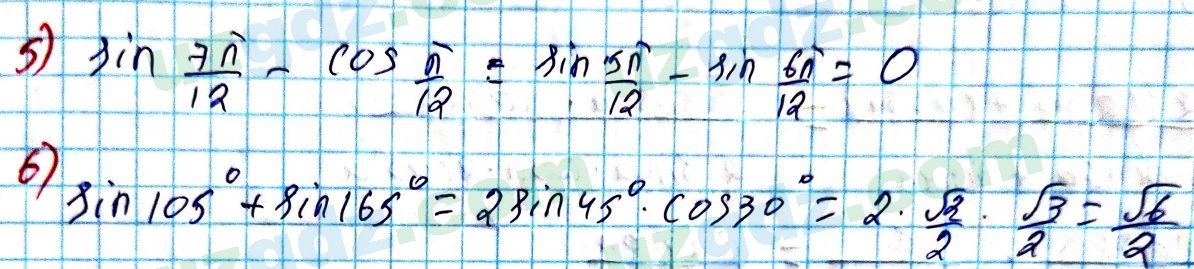 5) sin 7π/12 - cos π/12 = sin 5π/12 - sin 6π/12 = 0
6) sin 105° + sin 165° = 2 sin 45° · cos 30° = 2 · √2/2 · √3/2 = √6/2